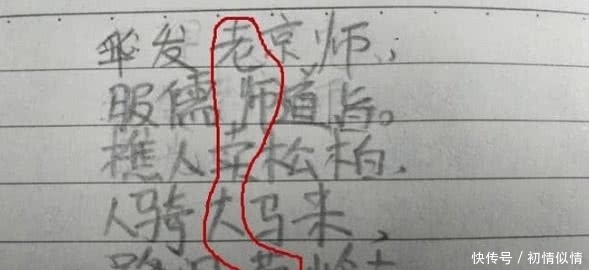 华发老京师、
服儒师道旨。
樵人卖松柏、
人骑大马来、
快传号 / 初情似情